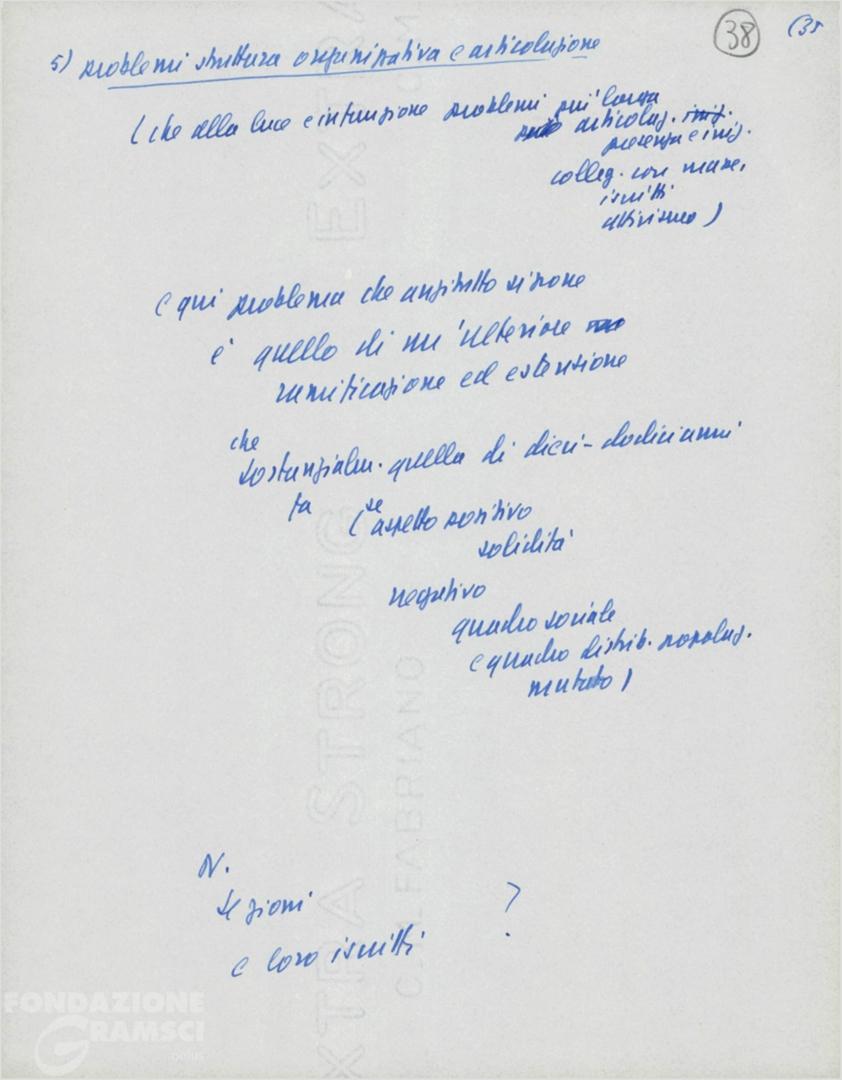 38
(35
5) problemi struttura organizzativa e articolazione
(che alla luce e intenzione problemi più larga
articolaz. iniz.
presenza e iniz.
colleg. con masse,
iscritti
attivismo)
e qui problema che anzitutto si pone
è quello di un'ulteriore
ramificazione ed estensione
che
sostanzialm. quella di dieci-dodici anni
fa
(se aspetto positivo
solidità
negativo
quadro sociale
e quadro distrib. popolaz.
mutato)
N.
sezioni
e loro iscritti ?
EXTRA STRONG EXTRA
FABRIANO
FONDAZIONE
GRAMSCI
onlus